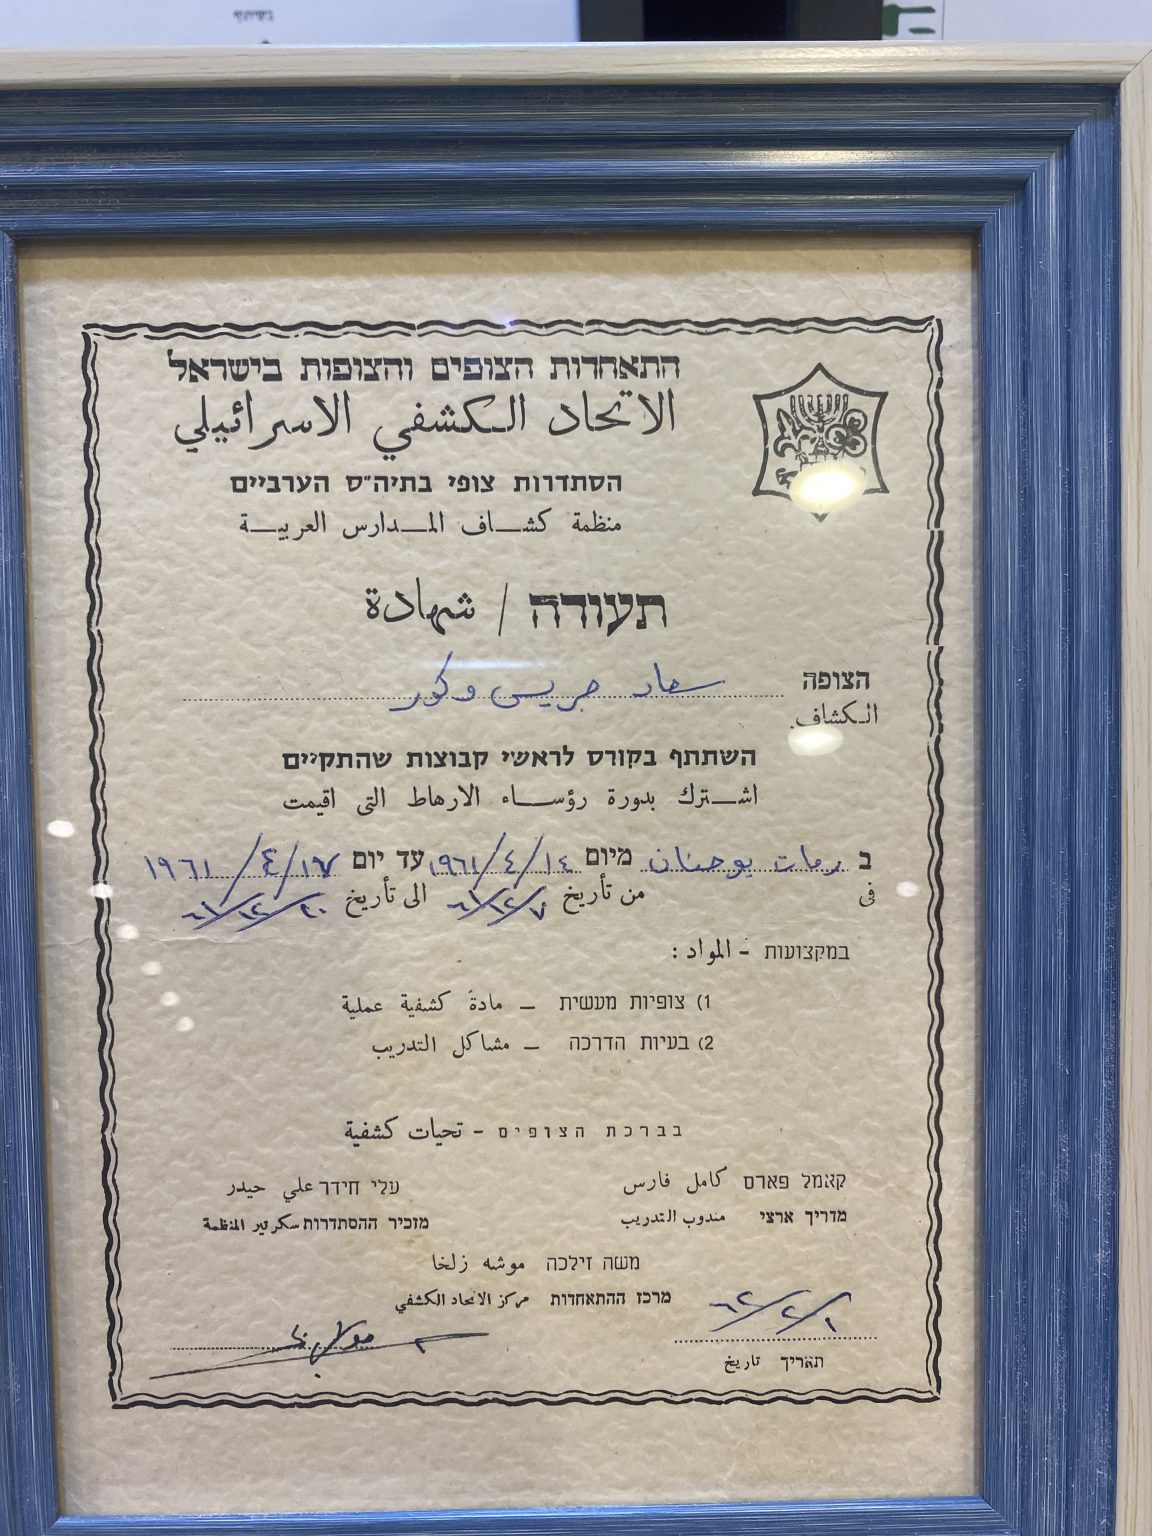 בשיתוף
התאחדות הצופים והצופות בישראל
الاتحاد الكشفي الاسرائيلي
הסתדרות צופי בתיה"ס הערביים
منظمة كشاف المدارس العربية
תעודה / شهادة
הצופה سعاد جريس وكور
الكشاف
השתתף בקורס לראשי קבוצות שהתקיים
اشترك بدورة رؤساء الارهاط التى اقيمت
ב رمات يوحنان מיום ١٤/٤/١٩٦١ עד יום ١٧/٤/١٩٦١
فى من تأريخ ٧/١٢/٦١ الى تأريخ ٢٠/١٢/٦١
במקצועות - المواد :
1) צופיות מעשית – مادة كشفية عملية
2) בעיות הדרכה – مشاكل التدريب
בברכת הצופים - تحيات كشفية
קאמל פארס كامل فارس עלי חידר علي حيدر
מדריך ארצי مندوب التدريب מזכיר ההסתדרות سكرتير المنظمة
משה זילכה موشه زلخا
מרכז ההתאחדות مركز الاتحاد الكشفي
١/٢/٦٢
תאריך تاريخ